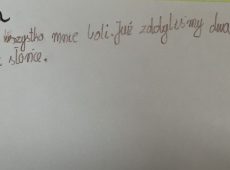 wszystko mnie boli. Już zdobyliśmy dwa
słońce.